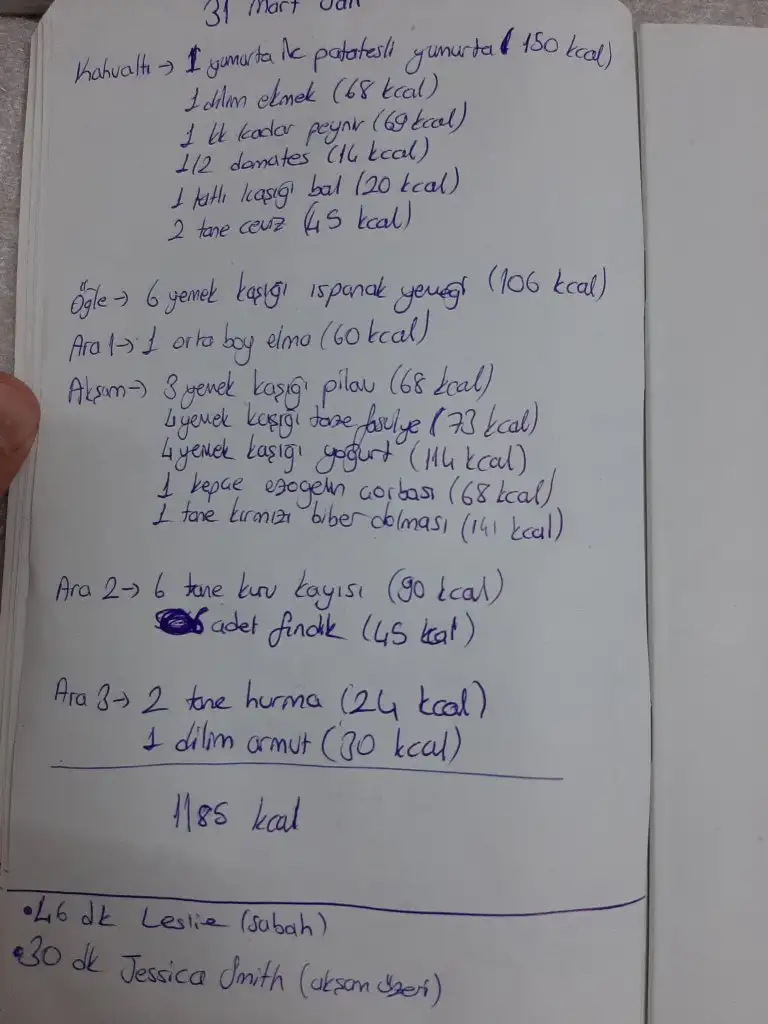 31 Mart Salı
Kahvaltı → 1 yumurta ile patatesli yumurta (150 kcal)
1 dilim ekmek (68 kcal)
1 kk kadar peynir (69 kcal)
1/2 domates (14 kcal)
1 tatlı kaşığı bal (20 kcal)
2 tane ceviz (45 kcal)
Öğle → 6 yemek kaşığı ıspanak yemeği (106 kcal)
Ara 1 → 1 orta boy elma (60 kcal)
Akşam → 3 yemek kaşığı pilav (68 kcal)
4 yemek kaşığı taze fasulye (73 kcal)
4 yemek kaşığı yoğurt (114 kcal)
1 kepçe ezogelin çorbası (68 kcal)
1 tane kırmızı biber dolması (141 kcal)
Ara 2 → 6 tane kuru kayısı (90 kcal)
6 adet fındık (45 kcal)
Ara 3 → 2 tane hurma (24 kcal)
1 dilim armut (30 kcal)
1185 kcal
• 46 dk Leslie (sabah)
• 30 dk Jessica Smith (akşam üzeri)